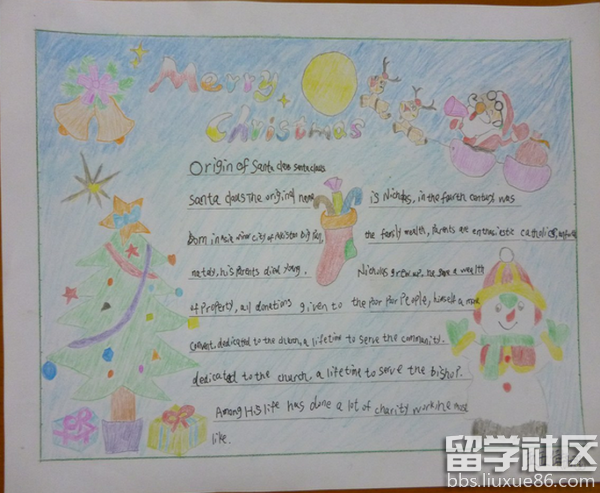 Merry
Christmas
Origin of Santa claus santa claus
santa claus The original name is Nicholas, in the fourth century was
Born in Asia minor city of the family wealth, Parents are enthusiastic catholics,
nately, his parents died young. Nicholas grew up, he gave a wealth
of Property, all donations given to the poor poor People, himself a
convent, dedicated to the church, a lifetime to serve the community.
dedicated to the church, a lifetime to serve the bishop.
Among His life has done a lot of charity work he most
like.
留学社区
bbs.liuxue86.com